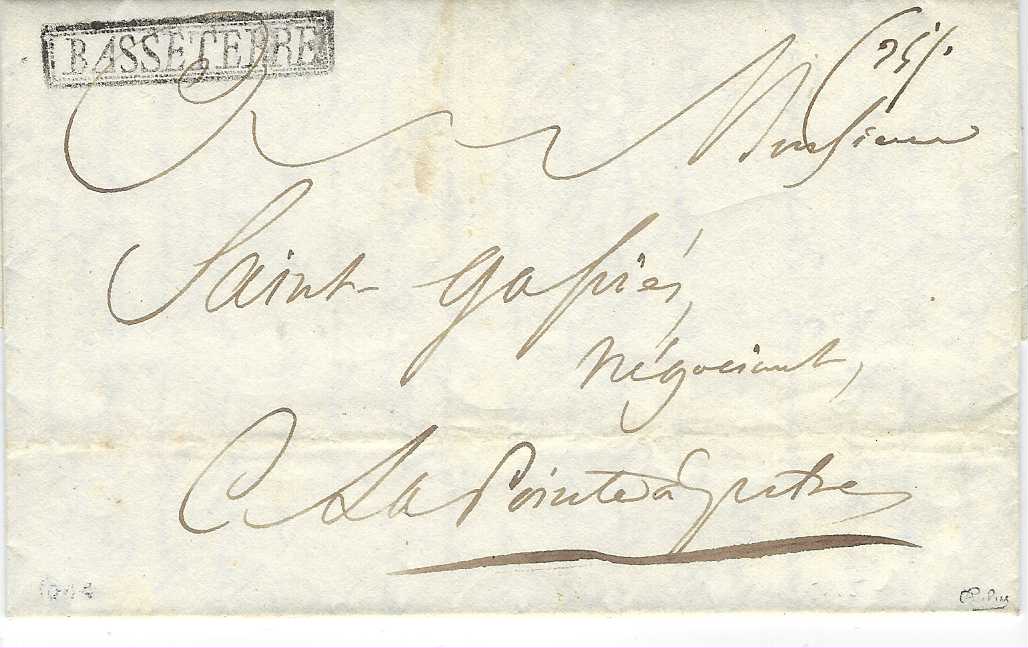 BASSETERRE
Monsieur
Saint-Gassiés,
négociant,
A La Pointe à Pitre